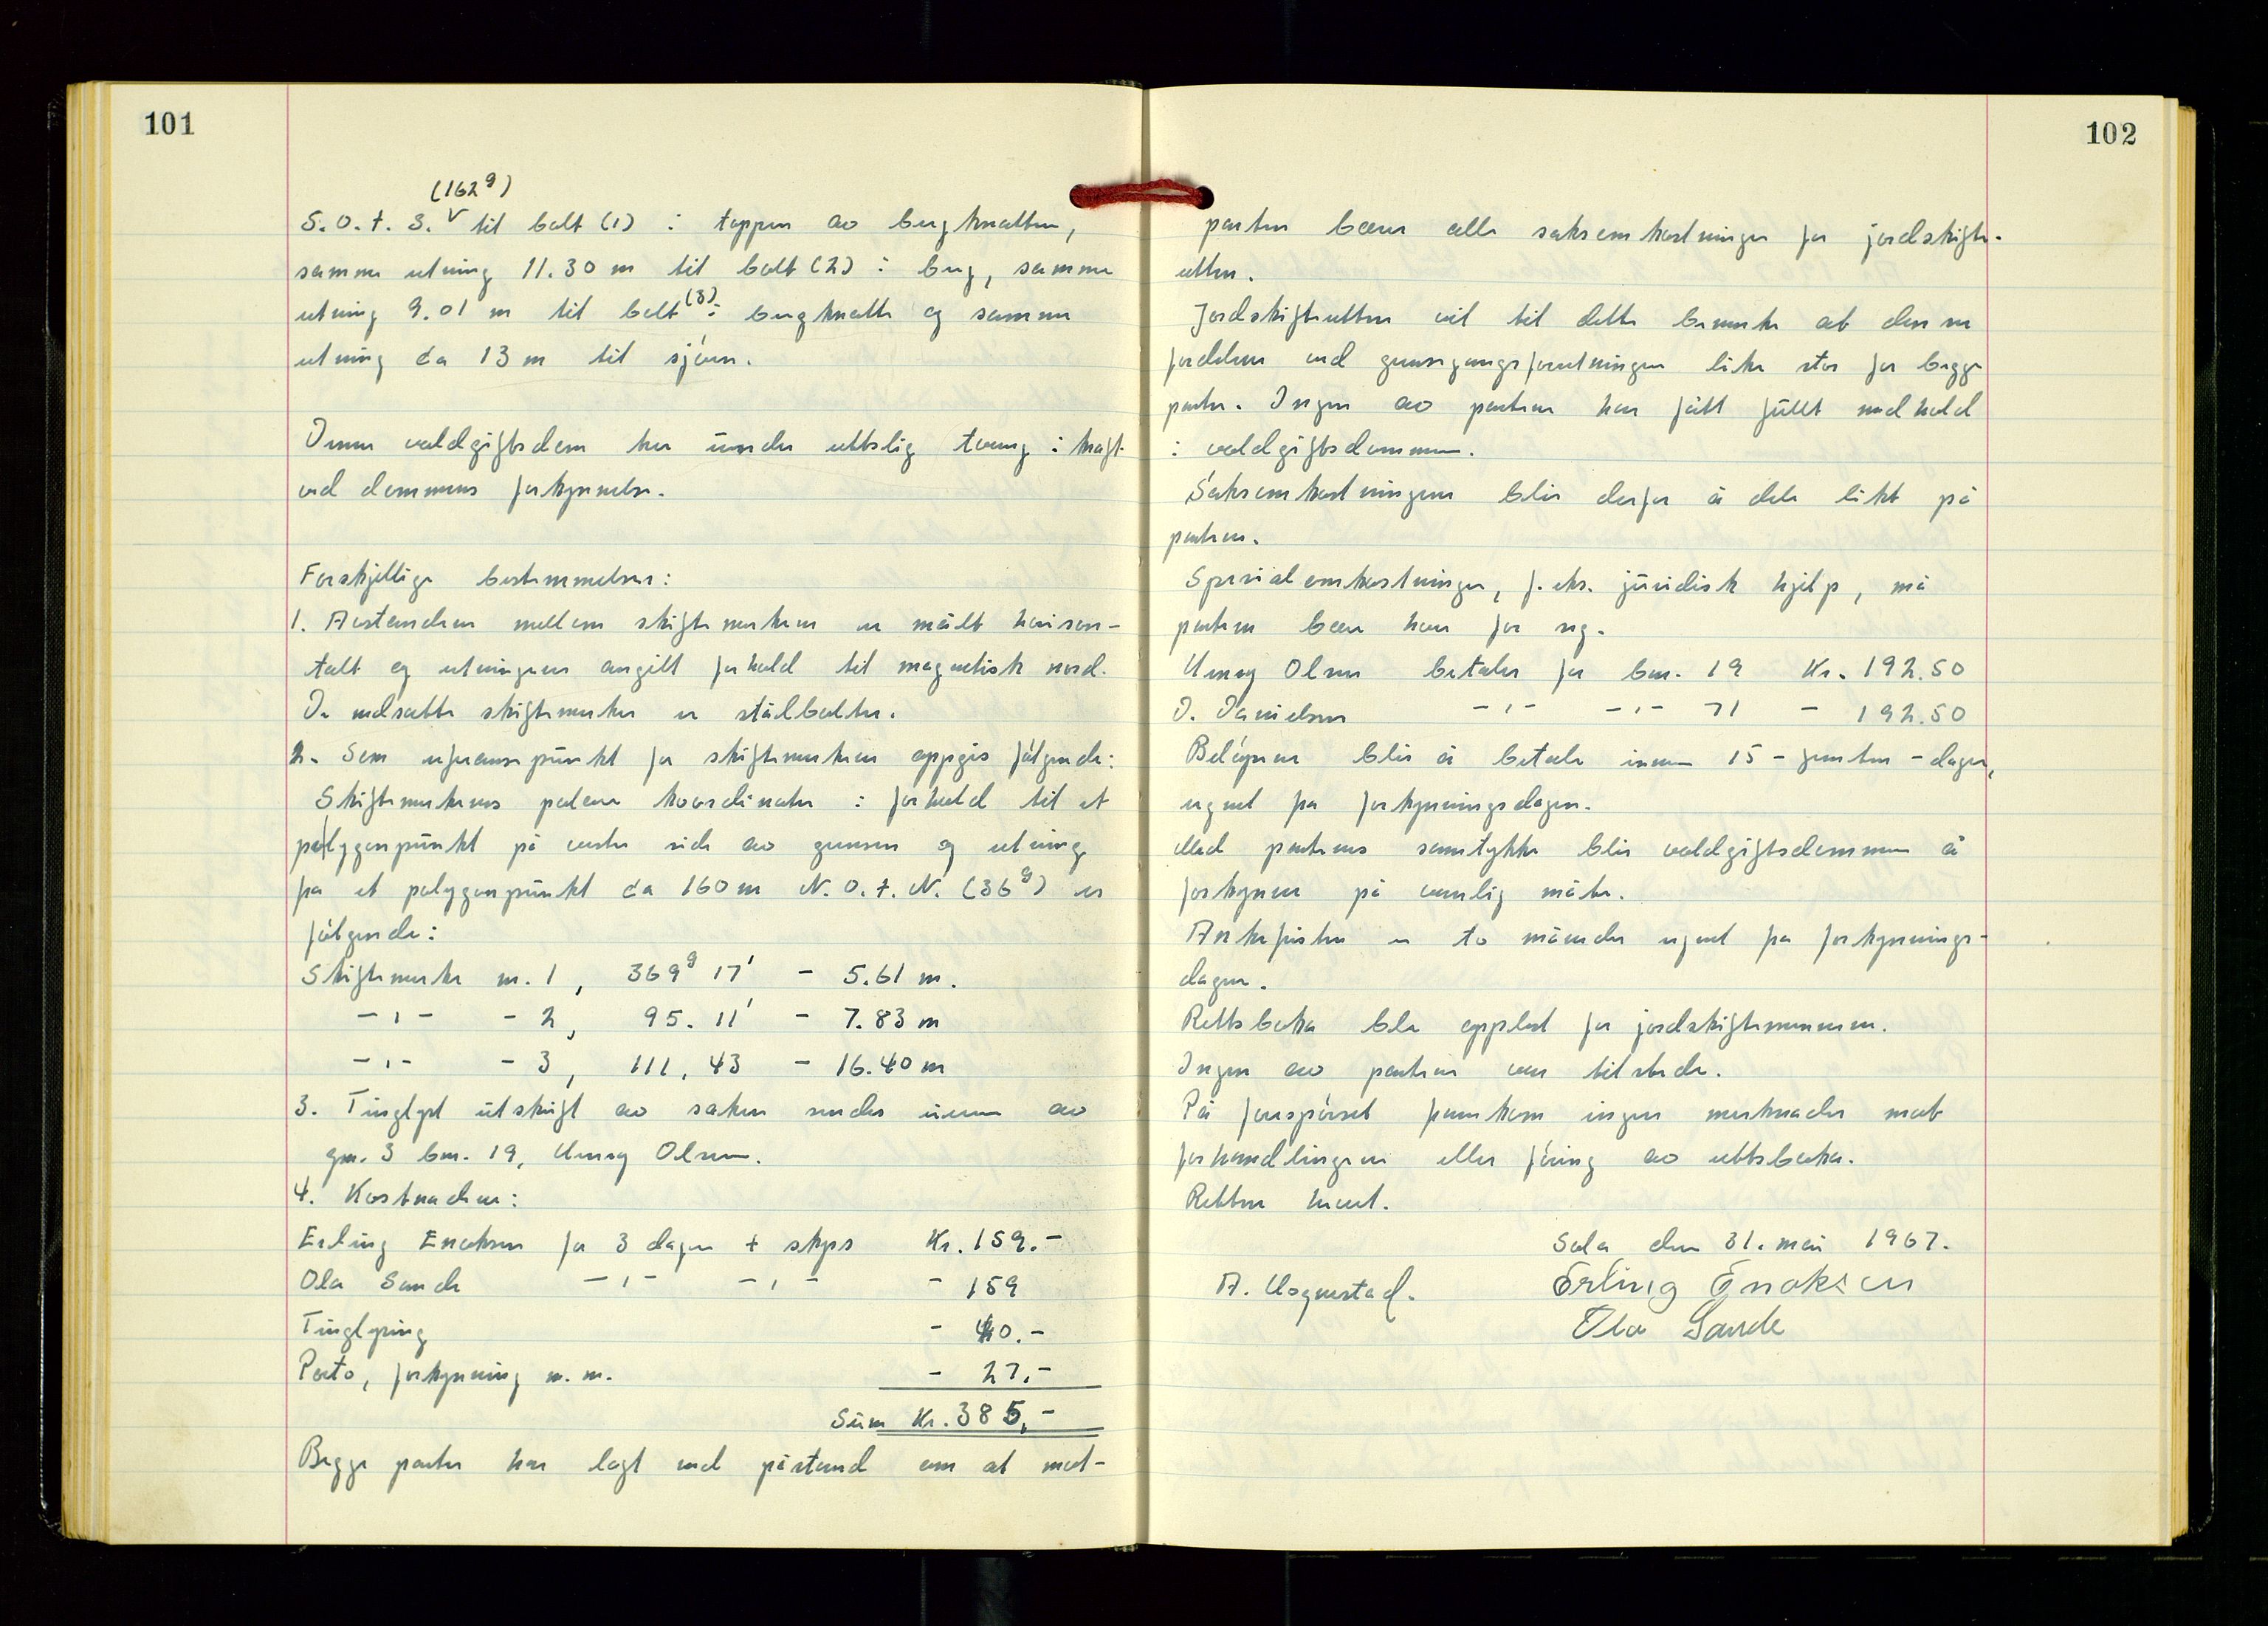 101
(162g)
S.O.t.S. v til bolt (1) i toppen av bergknatten,
samme retning 11.30 m til bolt (2) i berg, samme
retning 9.01 m til bolt (3) i bergknatte og samme
retning ca 13 m til sjøen.
Denne voldgiftsdom har under rettslig tvang i kraft
ved dommens forkynnelse.
Forskjellige bestemmelser:
1. Avstanden mellom skiftemerkene er målt horison-
talt og retningene angitt forhold til magnetisk nord.
De nedsatte skiftemerker er stålbolter.
2. Som referansepunkt for skiftemerkene oppgis følgende:
Skiftemerkenes polare koordinater i forhold til et
polygonpunkt på vestre side av grensen og retning
fra et polygonpunkt ca 160 m N.O.t.N. (36g) er
følgende:
Skiftemerke nr. 1, 369g 17' - 5.61 m.
-"- - 2, 95. 11' - 7.83 m
-"- - 3, 111, 43 - 16.40 m
3. Tinglyst utskrift av saken sendes eieren av
gnr. 3 bnr. 19, Olsen.
4. Kostnader:
Erling Enoksen for 3 dager + skyss Kr. 159.-
Ola Sande -"- -"- - 159
Tinglysing - 40.-
Porto, forkynning m.m. - 27.-
Sum Kr. 385,-
Begge parter har lagt ned påstand om at mot-
102
parten bærer alle saksomkostninger for jordskifte-
retten.
Jordskifteretten vil til dette bemerke at den ser
fordelen ved grensegangsforretningen like stor for begge
parter. Ingen av partene har fått fullt medhold
i voldgiftsdommen.
Saksomkostningene blir derfor å dele likt på
partene.
Spesialomkostninger, f.eks. juridisk hjelp, må
partene bære hver for seg.
Olsen betaler for bnr. 19 Kr. 192.50
D. Danielsen -"- -"- 71 - 192.50
Beløpene blir å betale innen 15 - femten - dager,
regnet fra forkynningsdagen.
Med partenes samtykke blir voldgiftsdommen å
forkynne på vanlig måte.
Ankefristen er to måneder regnet fra forkynnings-
dagen.
Rettsboka ble opplest for jordskiftemennene.
Ingen av partene var tilstede.
På forespørsel fremkom ingen merknader mot
forhandlingene eller føring av rettsboka.
Retten hevet.
Sola, den 31. mai 1967.
A. Vognestad.
Erling Enoksen
Ola Sande